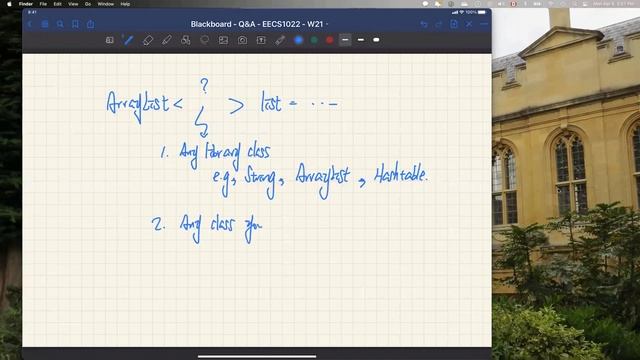 Finder File Edit View Window Help
9:41
Blackboard - Q&A - EECS1022 - W21
?
ArrayList < > list = ...
1. Any library class
e.g., String, ArrayList, Hashtable.
2. Any class you